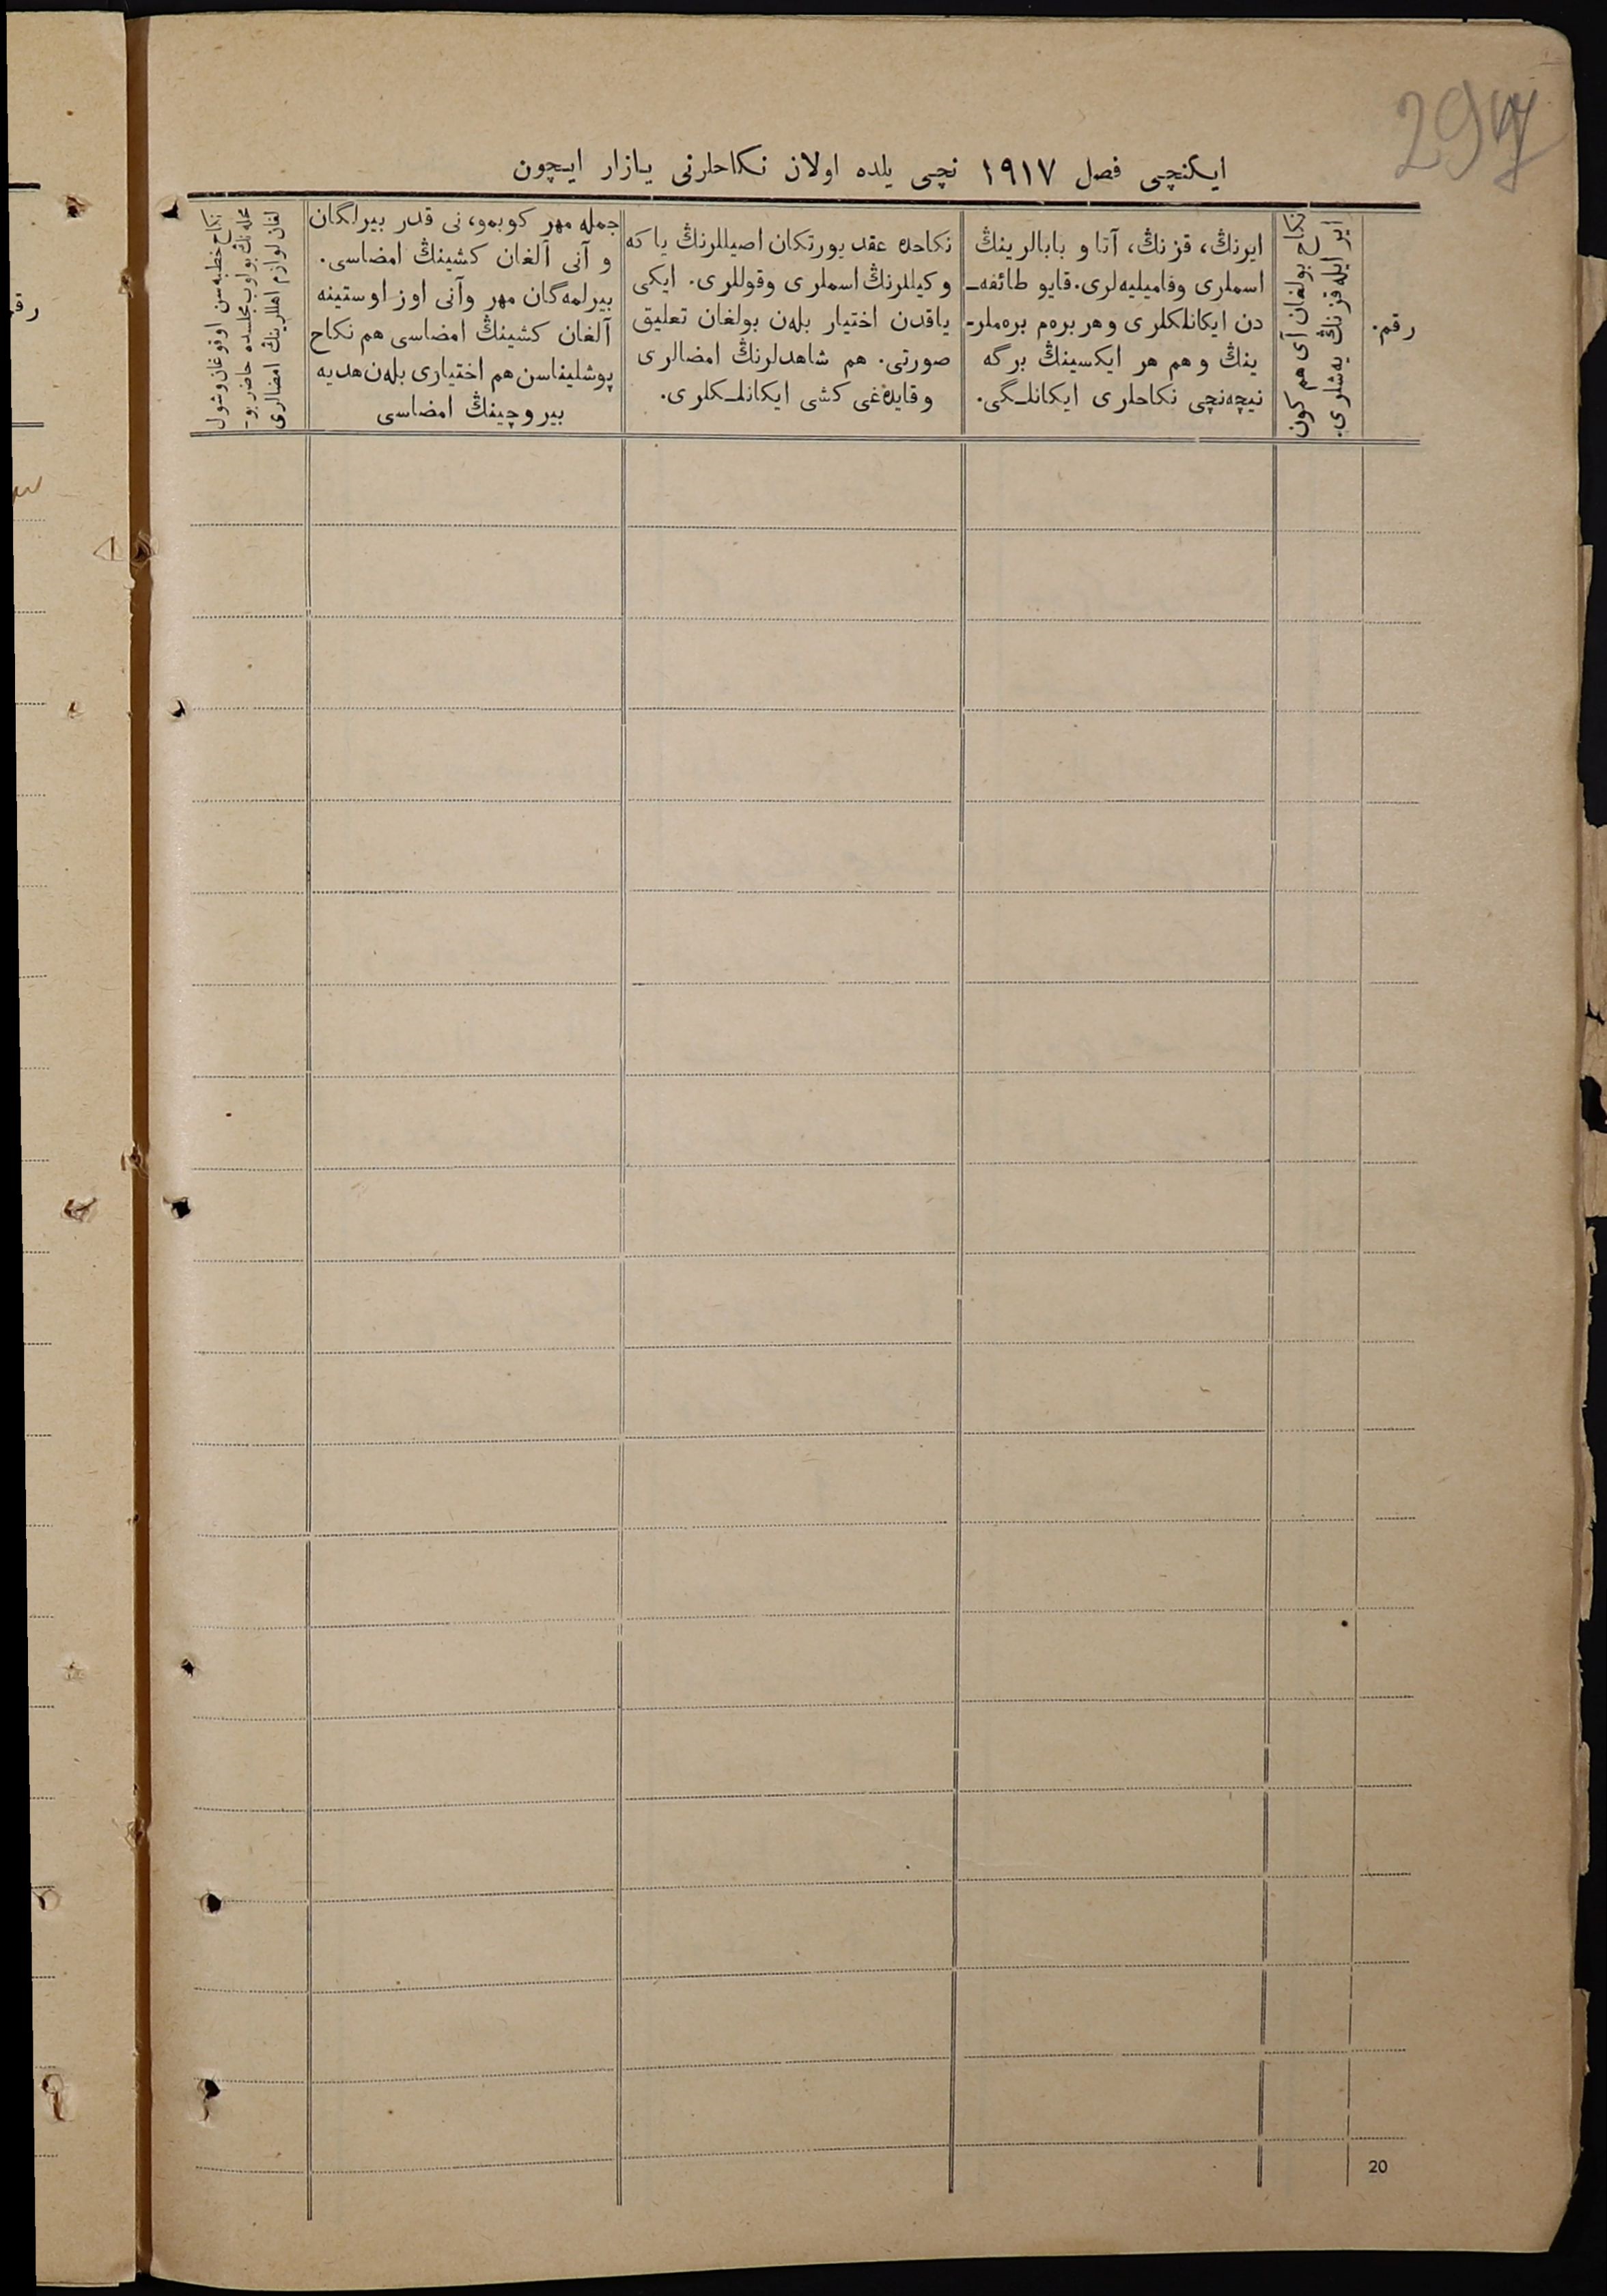 297
ایکنچی فصل ۱۹۱۷ نچی یلده اولان نکاحلرنی یازار ایچون
رقم.
ایر ایله قزنڭ یەشلری.
نکاح بولغان آی هم کون
ایرنڭ، قزنڭ، آتا و بابالرینڭ
اسملری وفامیلیەلری. قایو طائفه‌ـ
دن ایکانلکلری وهر برەم برەملر-
ینڭ وهم هر ایکسینڭ برگه
نیچەنچی نکاحلری ایکانلـگی.
نکاحده عقد یورتکان اصیللرنڭ یاکه
وکیللرنڭ اسملری وقوللری. ایکی
یاقدن اختیار بلەن بولغان تعلیق
صورتی. هم شاهدلرنڭ امضالری
وقایدەغی کشی ایکانلـکلری.
جمله مهر کوبمو، نی قدر بیرلگان
و آنی آلغان کشینڭ امضاسی.
بیرلمەگان مهر وآنی اوز اوستینه
آلغان کشینڭ امضاسی هم نکاح
پوشلیناسن هم اختیاری بلەن هدیه
بیروچینڭ امضاسی
نکاح خطبه سن اوقوغان وشول
محله نڭ بولوب مجلسده حاضر بو-
لغان لوازم اهللرینڭ امضالری
20
رقم